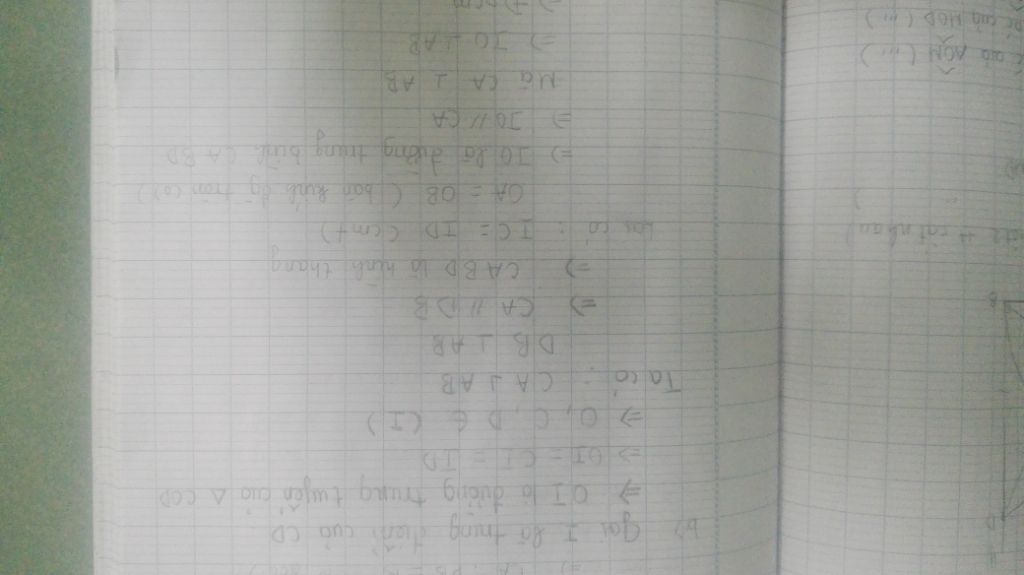 b) Gọi I là trung điểm của CD
=> OI là đường trung tuyến của Δ COD
=> OI = CI = ID
=> O, C, D ∈ (I)
Ta có : CA ⊥ AB
DB ⊥ AB
=> CA // DB
=> CABD là hình thang
Lại có : IC = ID (cmt)
OA = OB ( bán kính đg tròn (O))
=> IO là đường trung bình CABD
=> IO // CA
Mà CA ⊥ AB
=> IO ⊥ AB
=> Đpcm
cắt nhau)
của AOM (...)
của MOB (...)
D
B